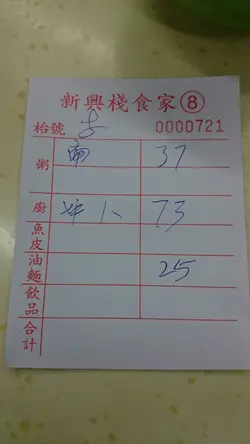 新興棧食家⑧
枱號 0000721
粥 37
廚 73
魚皮
油麵 25
飲品
合計